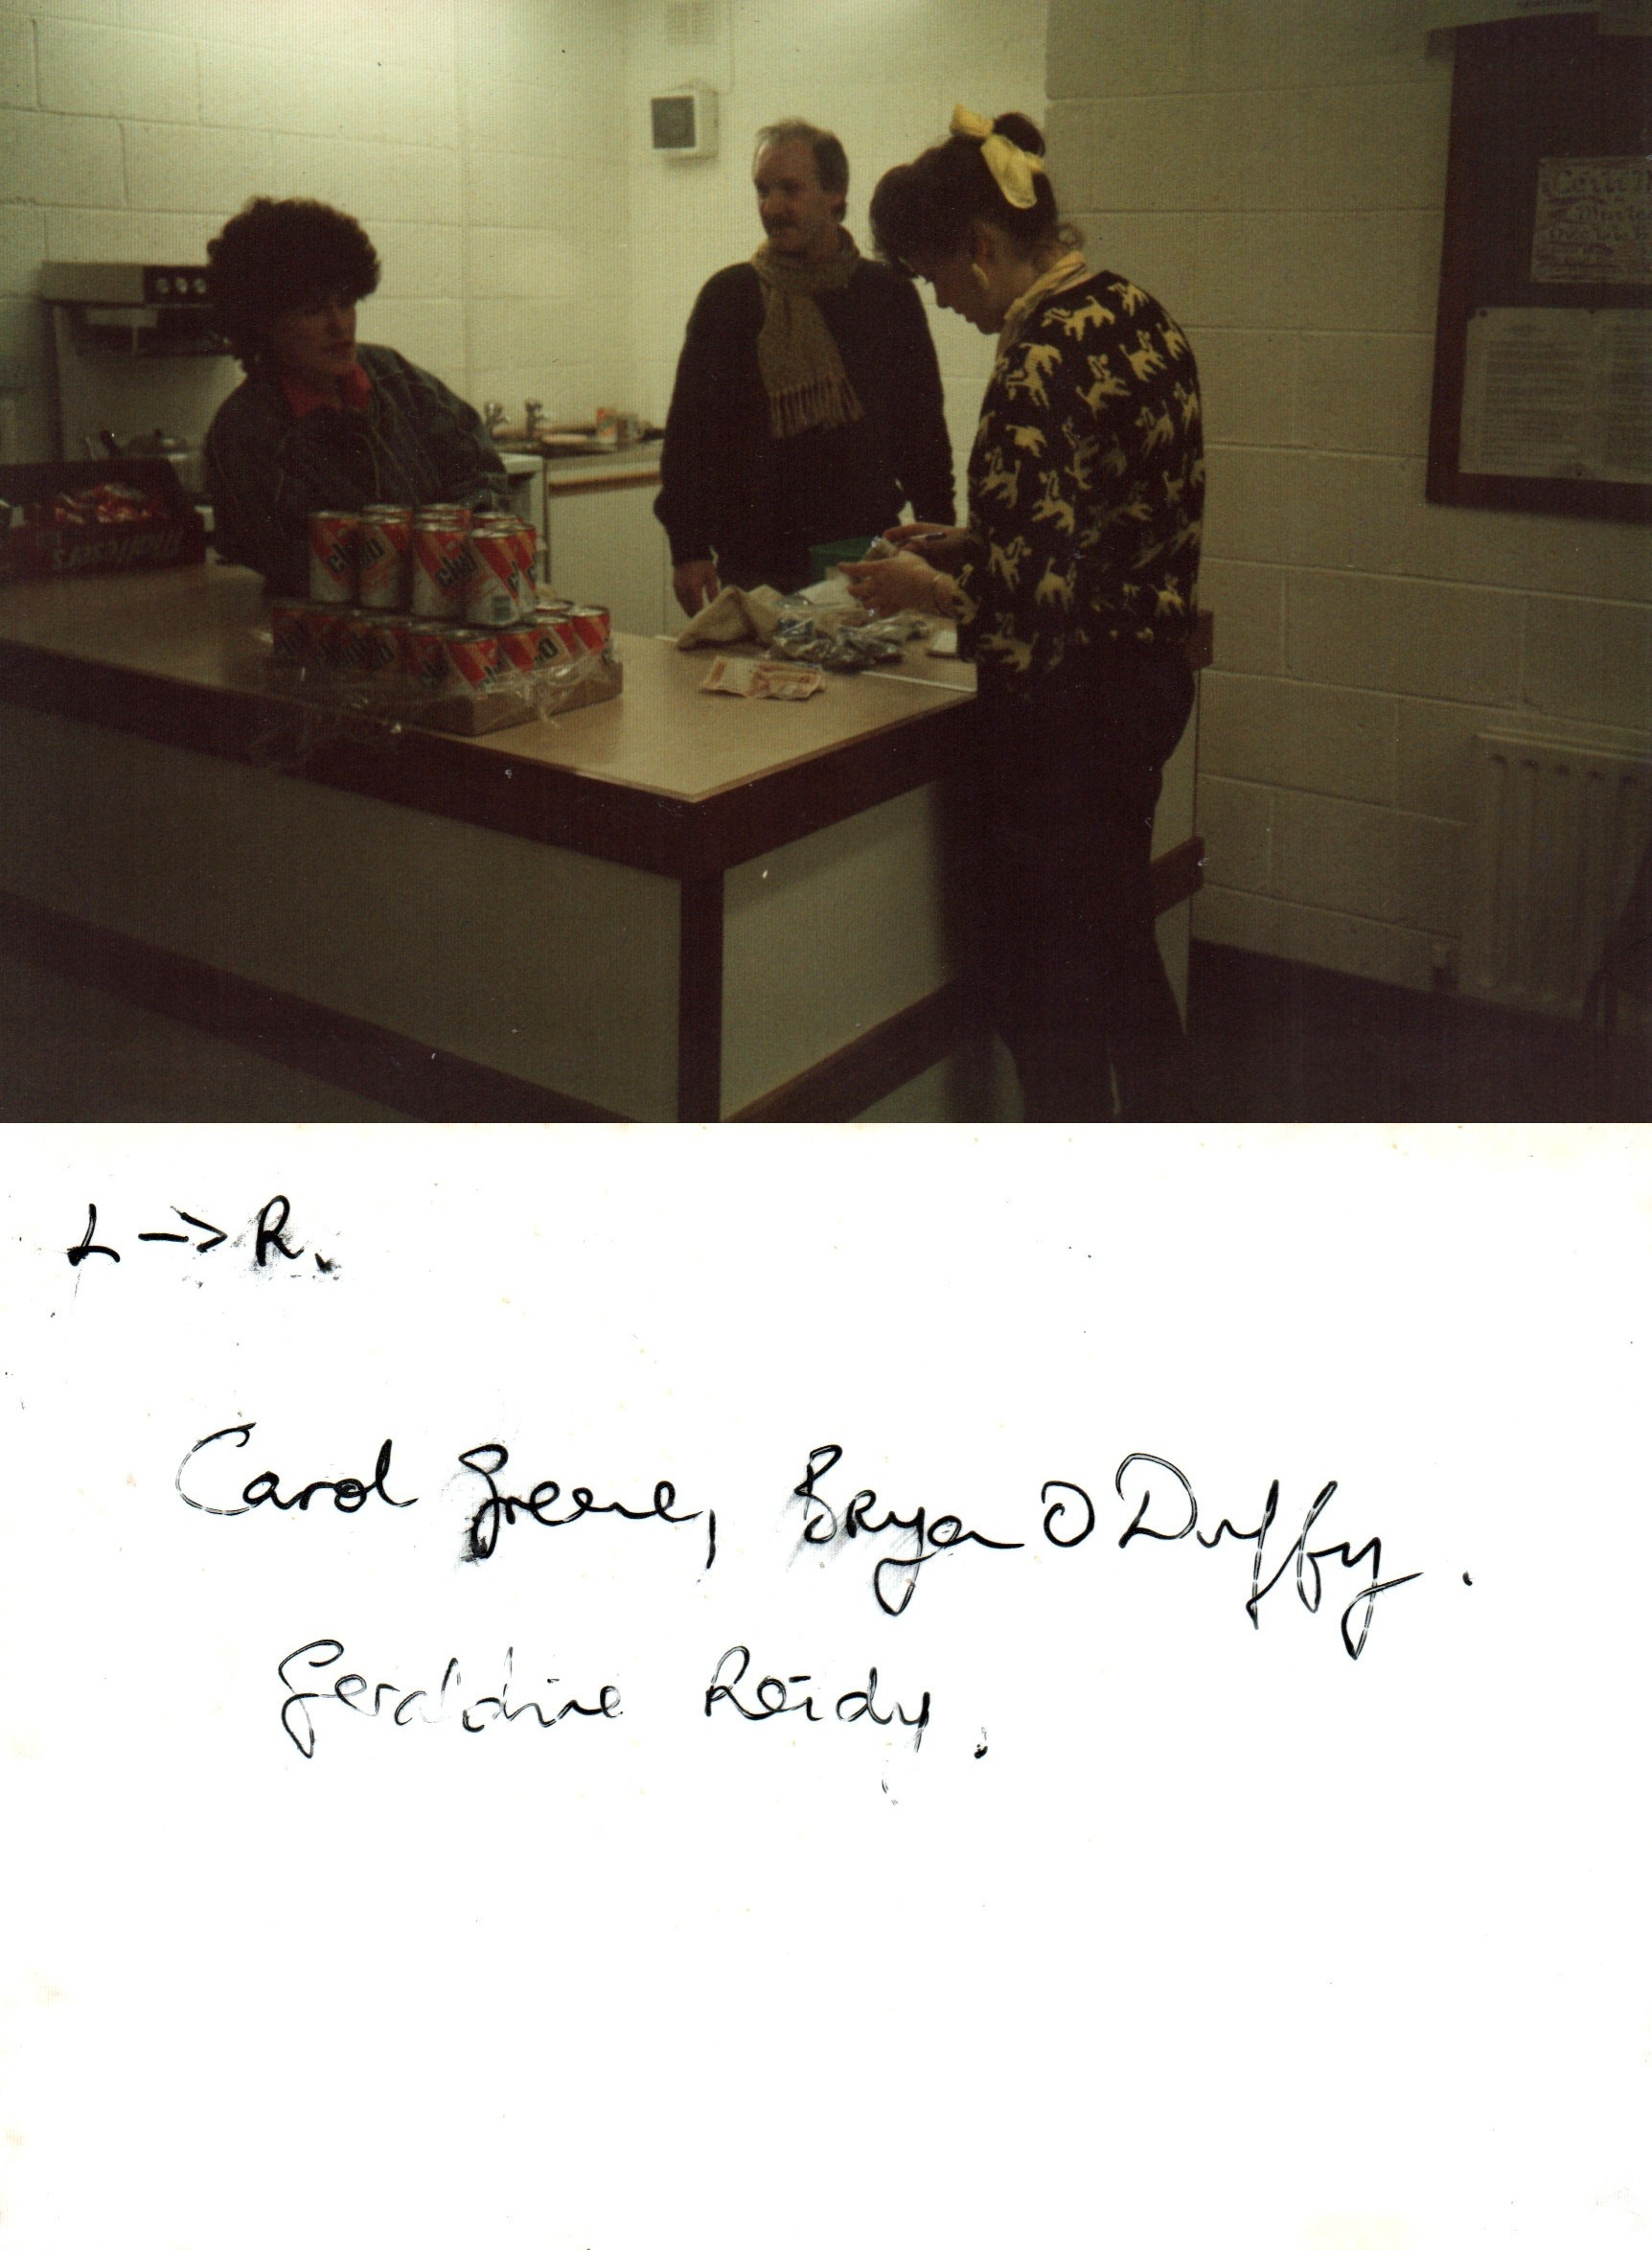 Maltesers
club
club
club
L -> R.
Carol Greene, Bryan O Duffy.
Geraldine Reidy.